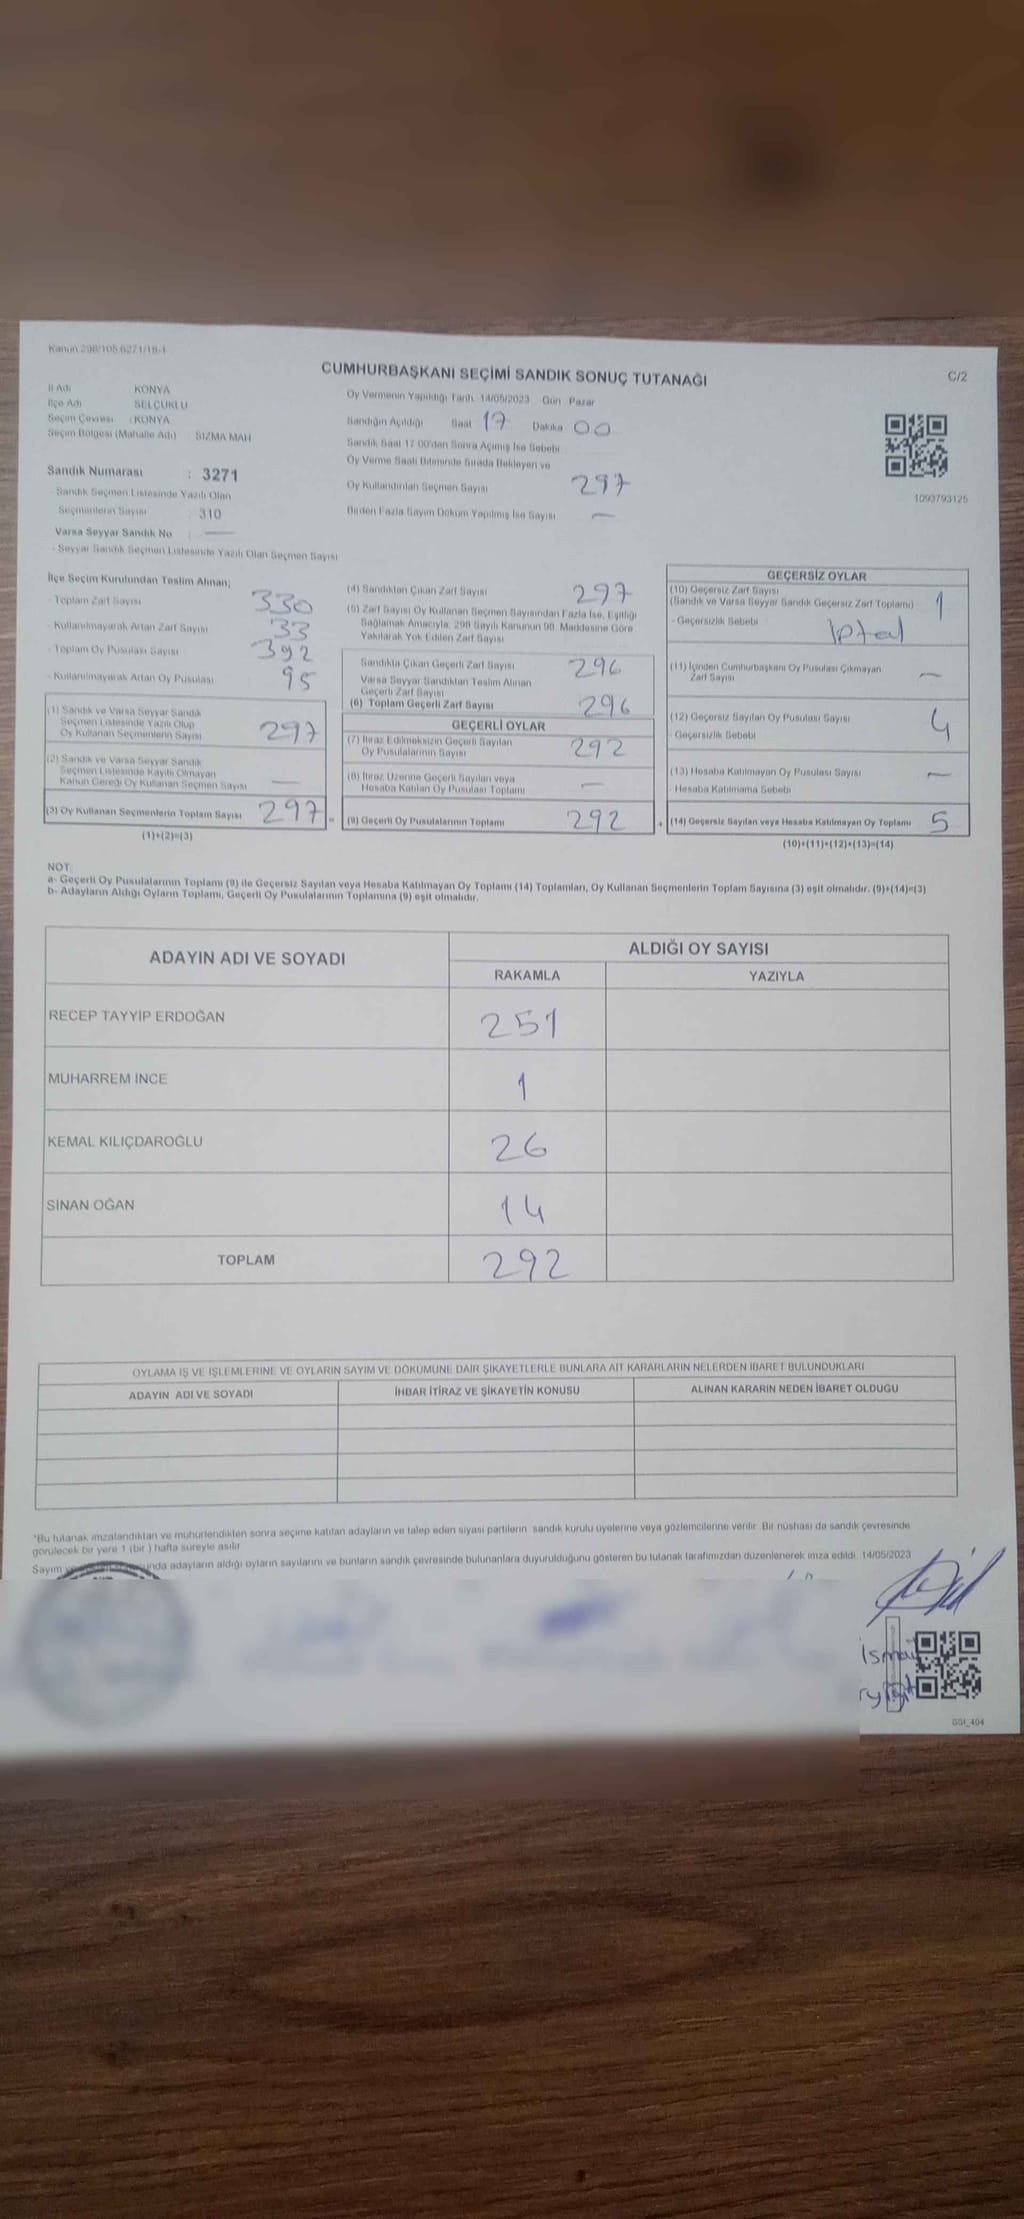 Kanun 298/105 6271/16-1
CUMHURBAŞKANI SEÇİMİ SANDIK SONUÇ TUTANAĞI
C/2
İl Adı KONYA
İlçe Adı SELÇUKLU
Seçim Çevresi : KONYA
Seçim Bölgesi (Mahalle Adı) : SIZMA MAH
Sandık Numarası : 3271
- Sandık Seçmen Listesinde Yazılı Olan
Seçmenlerin Sayısı : 310
Varsa Seyyar Sandık No : —
- Seyyar Sandık Seçmen Listesinde Yazılı Olan Seçmen Sayısı
Oy Vermenin Yapıldığı Tarih: 14/05/2023 Gün Pazar
Sandığın Açıldığı Saat 17 Dakika 00
Sandık Saat 17 00'den Sonra Açımış İse Sebebi
Oy Verme Saati Bitiminde Sırada Bekleyen ve
Oy Kullandırılan Seçmen Sayısı 297
Birden Fazla Sayım Döküm Yapılmış İse Sayısı —
1093793125
İlçe Seçim Kurulundan Teslim Alınan;
- Toplam Zarf Sayısı 330
- Kullanılmayarak Artan Zarf Sayısı 33
- Toplam Oy Pusulası Sayısı 392
- Kullanılmayarak Artan Oy Pusulası 95
(1) Sandık ve Varsa Seyyar Sandık
Seçmen Listesinde Yazılı Olup
Oy Kullanan Seçmenlerin Sayısı 297
(2) Sandık ve Varsa Seyyar Sandık
Seçmen Listesinde Kayıtlı Olmayan
Kanun Gereği Oy Kullanan Seçmen Sayısı —
(3) Oy Kullanan Seçmenlerin Toplam Sayısı 297 =
(1)+(2)=(3)
(4) Sandıktan Çıkan Zarf Sayısı 297
(5) Zarf Sayısı Oy Kullanan Seçmen Sayısından Fazla İse, Eşitliği
Sağlamak Amacıyla, 298 Sayılı Kanunun 98. Maddesine Göre
Yakılarak Yok Edilen Zarf Sayısı
Sandıkta Çıkan Geçerli Zarf Sayısı 296
Varsa Seyyar Sandıktan Teslim Alınan
Geçerli Zarf Sayısı
(6) Toplam Geçerli Zarf Sayısı 296
GEÇERLİ OYLAR
(7) İtiraz Edilmeksizin Geçerli Sayılan
Oy Pusulalarının Sayısı 292
(8) İtiraz Üzerine Geçerli Sayılan veya
Hesaba Katılan Oy Pusulası Toplamı —
(9) Geçerli Oy Pusulalarının Toplamı 292 +
GEÇERSİZ OYLAR
(10) Geçersiz Zarf Sayısı
(Sandık ve Varsa Seyyar Sandık Geçersiz Zarf Toplamı) 1
- Geçersizlik Sebebi İptal
(11) İçinden Cumhurbaşkanı Oy Pusulası Çıkmayan
Zarf Sayısı —
(12) Geçersiz Sayılan Oy Pusulası Sayısı 4
- Geçersizlik Sebebi
(13) Hesaba Katılmayan Oy Pusulası Sayısı —
- Hesaba Katılmama Sebebi
(14) Geçersiz Sayılan veya Hesaba Katılmayan Oy Toplamı 5
(10)+(11)+(12)+(13)=(14)
NOT:
a- Geçerli Oy Pusulalarının Toplamı (9) ile Geçersiz Sayılan veya Hesaba Katılmayan Oy Toplamı (14) Toplamları, Oy Kullanan Seçmenlerin Toplam Sayısına (3) eşit olmalıdır. (9)+(14)=(3)
b- Adayların Aldığı Oyların Toplamı, Geçerli Oy Pusulalarının Toplamına (9) eşit olmalıdır.
ADAYIN ADI VE SOYADI
ALDIĞI OY SAYISI
RAKAMLA YAZIYLA
RECEP TAYYİP ERDOĞAN 251
MUHARREM İNCE 1
KEMAL KILIÇDAROĞLU 26
SİNAN OĞAN 14
TOPLAM 292
OYLAMA İŞ VE İŞLEMLERİNE VE OYLARIN SAYIM VE DÖKÜMÜNE DAİR ŞİKAYETLERLE BUNLARA AİT KARARLARIN NELERDEN İBARET BULUNDUKLARI
ADAYIN ADI VE SOYADI İHBAR İTİRAZ VE ŞİKAYETİN KONUSU ALINAN KARARIN NEDEN İBARET OLDUĞU
*Bu tutanak imzalandıktan ve mühürlendikten sonra seçime katılan adayların ve talep eden siyasi partilerin sandık kurulu üyelerine veya gözlemcilerine verilir. Bir nüshası da sandık çevresinde
görülecek bir yere 1 (bir ) hafta süreyle asılır
Sayım unda adayların aldığı oyların sayılarını ve bunların sandık çevresinde bulunanlara duyurulduğunu gösteren bu tutanak tarafımızdan düzenlenerek imza edildi. 14/05/2023
GSI_404